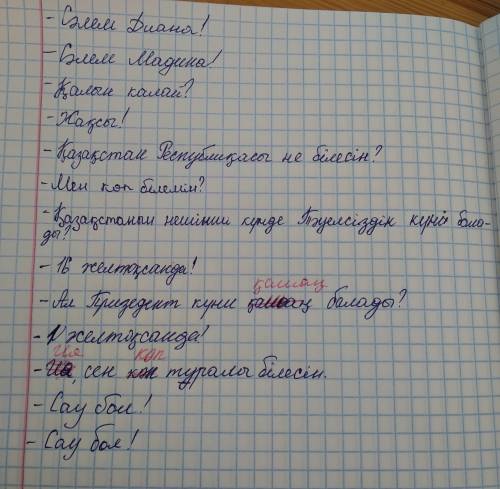 - Сәлем Диана!
- Сәлем Мадина!
- Қалын калай?
- Жақсы!
- Қазақстан Республиқасы не білесін?
- Мен коп білемін?
- Қазақстанын нешінши күнде Тәуелсіздік күнің бола-
ды?
- 16 желтоқсанда!
қашаң
- Ал Призедент куни болады?
- 1 желтоқсанда!
коп
- сен коп туралы білесін.
- Сау бол!
- Сау бол!